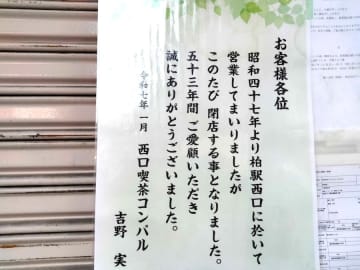 お客様各位
昭和四十七年より柏駅西口に於いて
営業してまいりましたが
このたび 閉店する事となりました。
五十三年間 ご愛顧いただき
誠にありがとうございました。
令和七年一月 西口喫茶コンパル
吉野 実